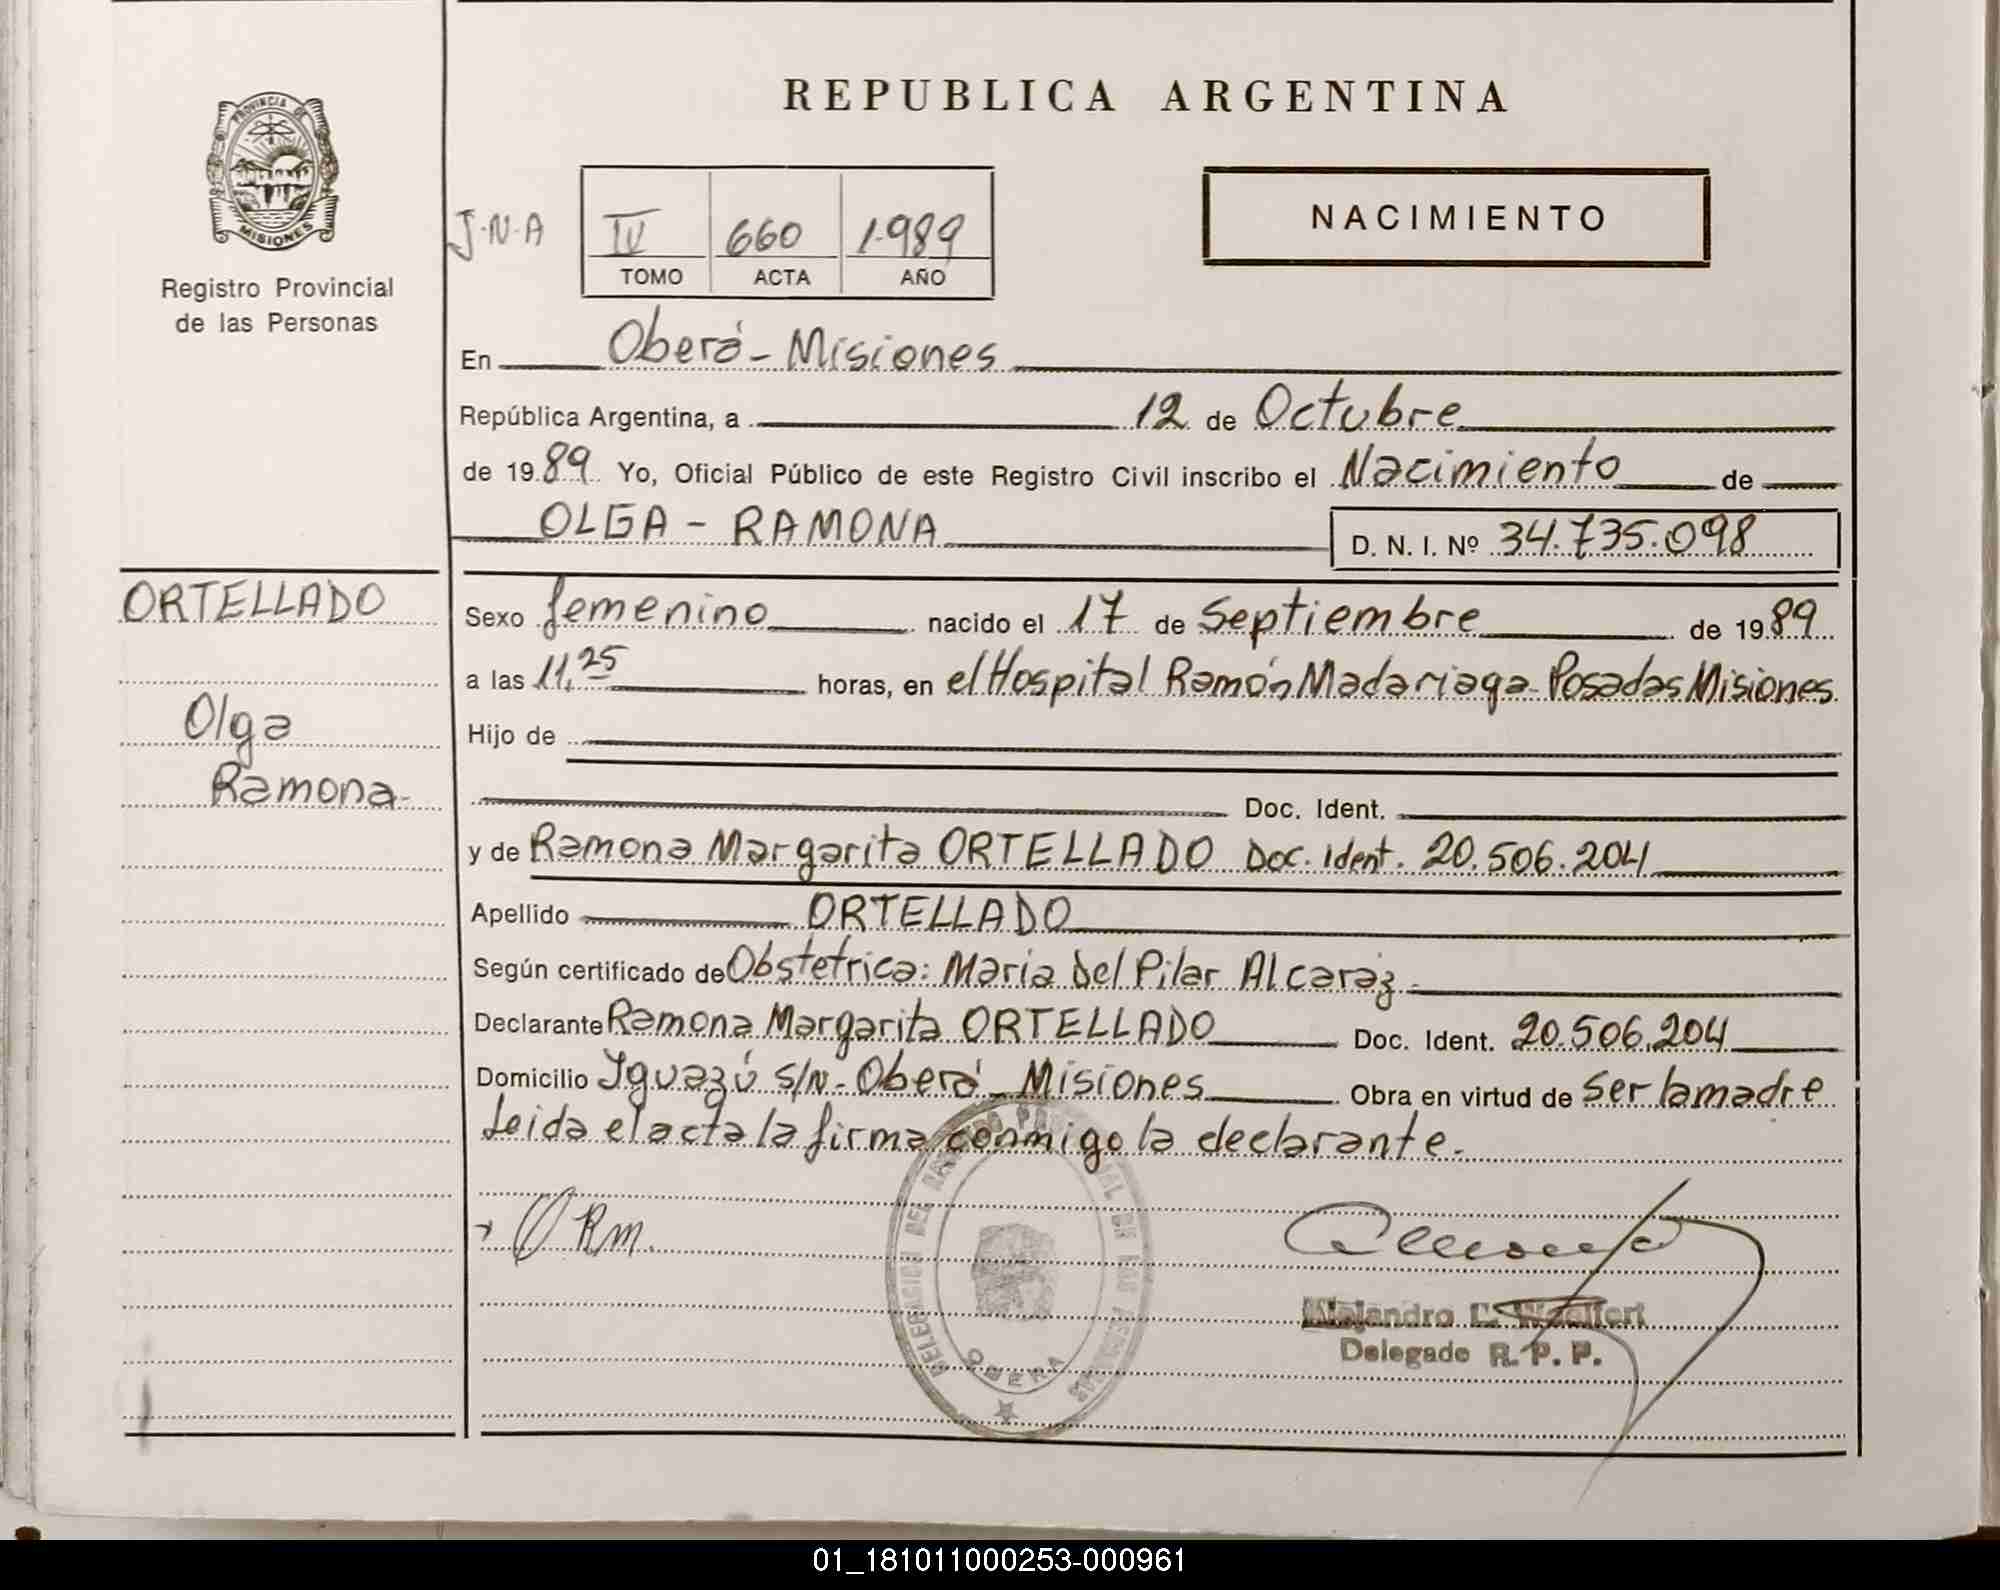 REPUBLICA ARGENTINA
PROVINCIA DE
MISIONES
Registro Provincial
de las Personas
J.N.A
IV 660 1.989
TOMO ACTA AÑO
NACIMIENTO
En Oberá - Misiones
República Argentina, a 12 de Octubre
de 1989 Yo, Oficial Público de este Registro Civil inscribo el Nacimiento de
OLGA - RAMONA D. N. I. Nº 34.735.098
ORTELLADO
Olga
Ramona-
Sexo femenino nacido el 17 de Septiembre de 1989
a las 11,25 horas, en el Hospital Ramón Madariaga - Posadas Misiones
Hijo de
Doc. Ident.
y de Ramona Margarita ORTELLADO Doc. Ident. 20.506.204
Apellido ORTELLADO
Según certificado de Obstetrica: Maria Del Pilar Alcaráz -
Declarante Ramona Margarita ORTELLADO Doc. Ident. 20.506.204
Domicilio Iguazú s/n - Oberá - Misiones Obra en virtud de ser la madre
Leida el acta la firma conmigo la declarante.
O Rm.
DELEGACION DEL REGISTRO PROVINCIAL DE LAS PERSONAS
OBERA
Alejandro
Delegado R. P. P.
01_181011000253-000961